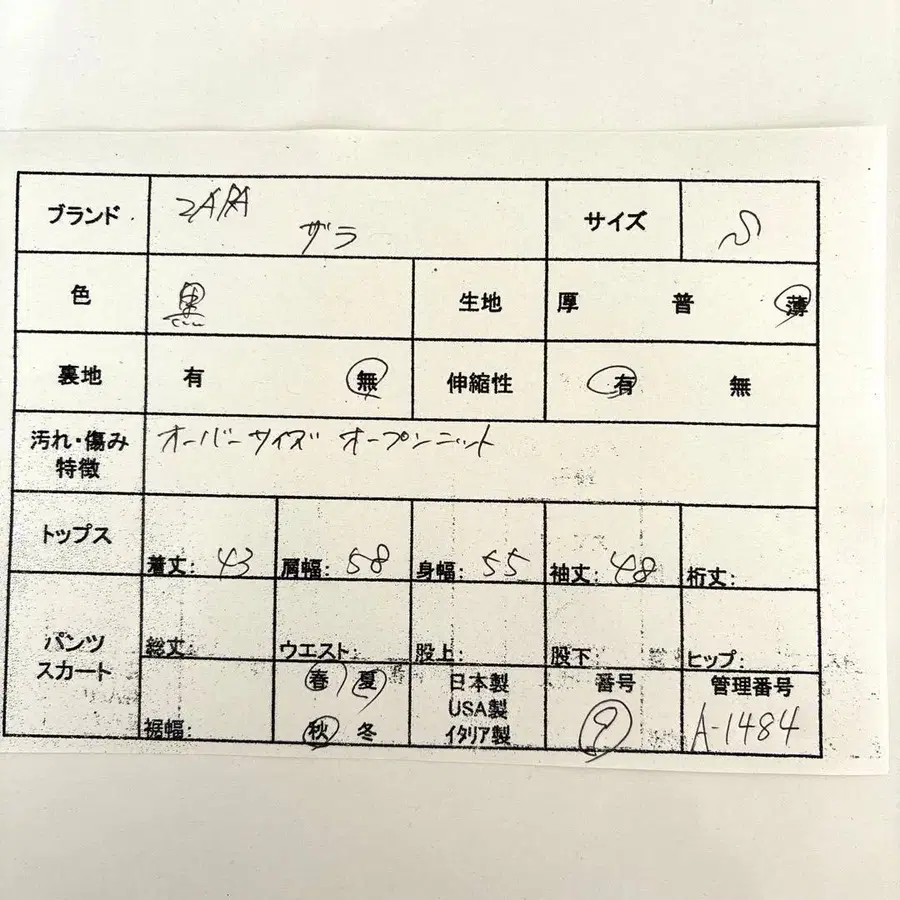 ブランド ZARA サイズ S
ザラ
色 黒 生地 厚 普 薄
裏地 有 無 伸縮性 有 無
汚れ・傷み オーバーサイズ オープンニット
特徴
トップス
着丈: 43 肩幅: 58 身幅: 55 袖丈: 48 裄丈:
パンツ
スカート
総丈 ウエスト: 股上: 股下 ヒップ:
裾幅:
春 夏
秋 冬
日本製
USA製
イタリア製
番号
9
管理番号
A-1484